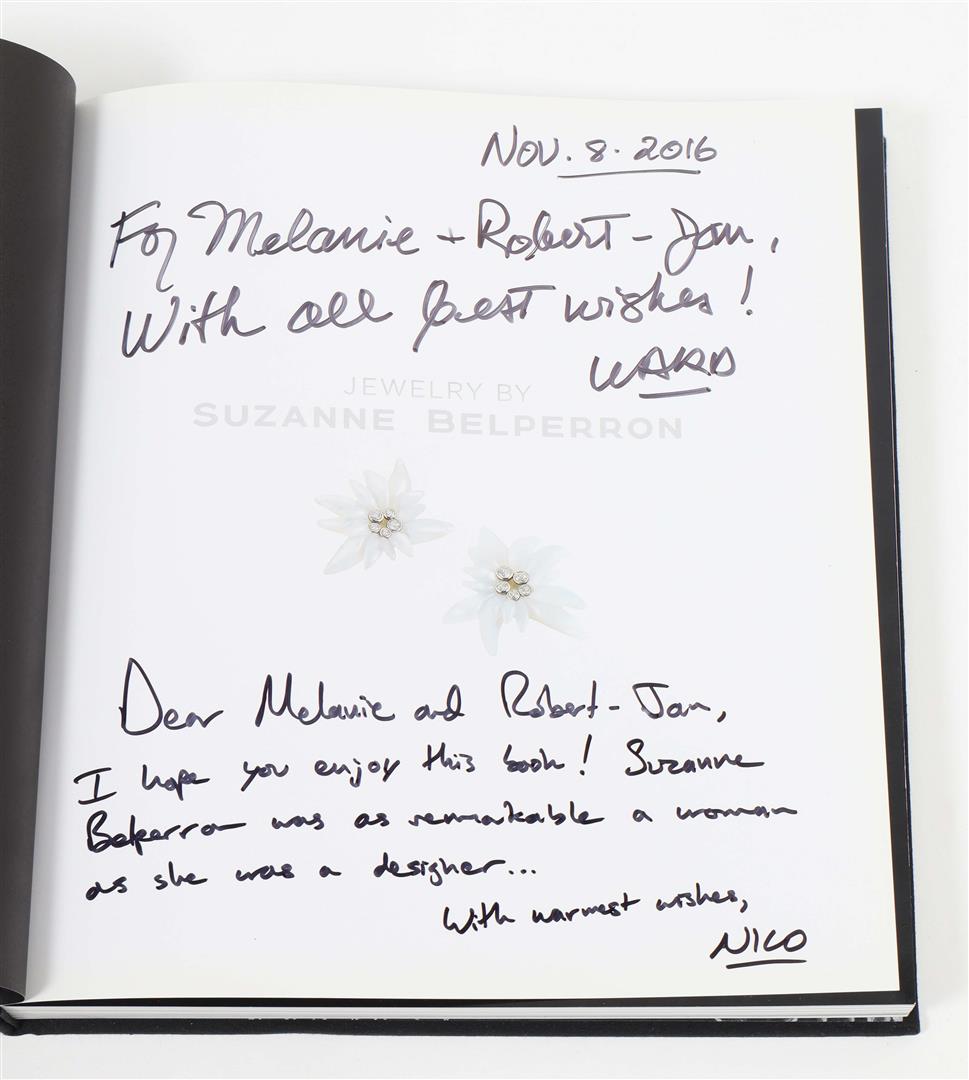 Nov. 8. 2016
For Melanie + Robert-Jan,
With all best wishes!
WARD
JEWELRY BY
SUZANNE BELPERRON
Dear Melanie and Robert-Jan,
I hope you enjoy this book! Suzanne
Belperron was as remarkable a woman
as she was a designer...
With warmest wishes,
NICO